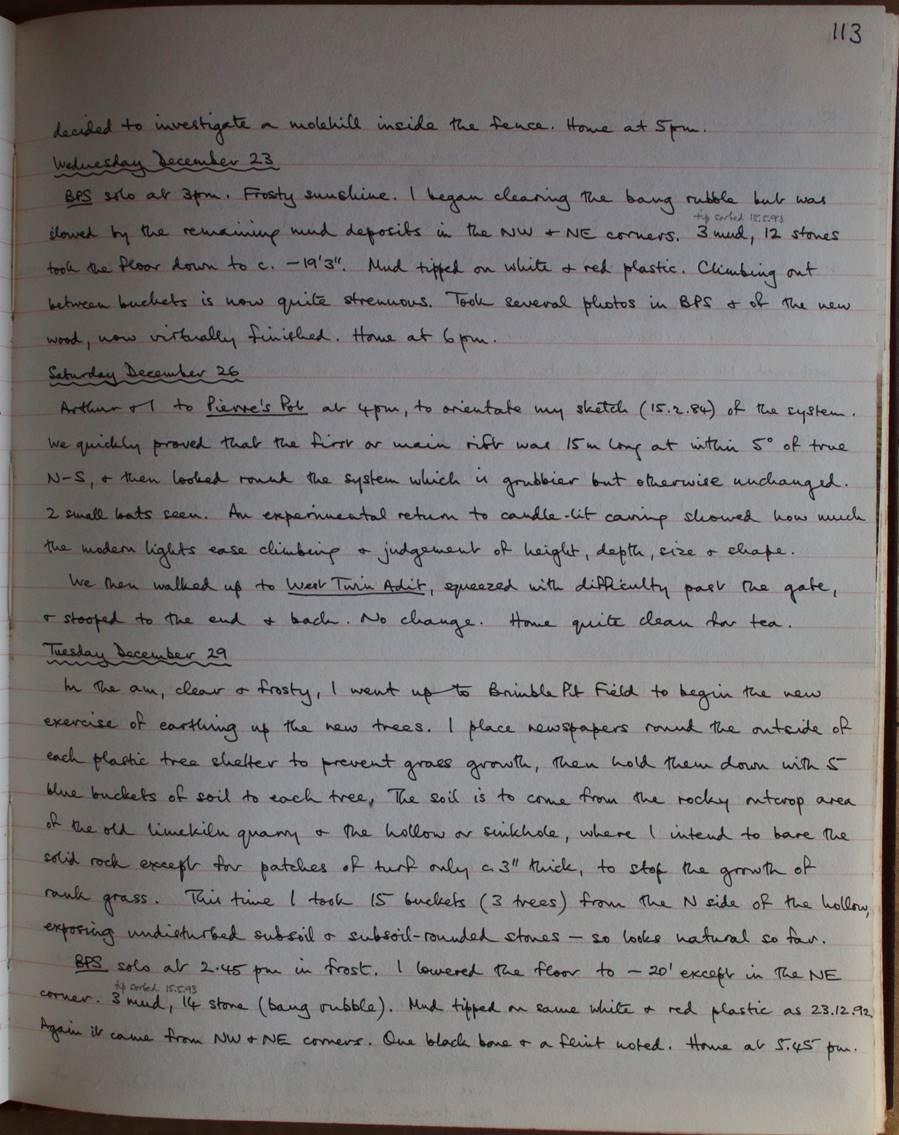 113
decided to investigate a molehill inside the fence. Home at 5pm.
Wednesday December 23
BPS solo at 3pm. Frosty sunshine. I began clearing the bang rubble but was
tip sorted 15.5.93
slowed by the remaining mud deposits in the NW & NE corners. 3 mud, 12 stones
took the floor down to c. -19'3". Mud tipped on white & red plastic. Climbing out
between buckets is now quite strenuous. Took several photos in BPS & of the new
wood, now virtually finished. Home at 6pm.
Saturday December 26
Arthur & I to Pierre's Pot at 4pm, to orientate my sketch (15.2.84) of the system.
We quickly proved that the first or main rift was 15m long at within 5° of true
N-S, & then looked round the system which is grubbier but otherwise unchanged.
2 small bats seen. An experimental return to candle-lit caving showed how much
the modern lights ease climbing & judgement of height, depth, size & shape.
We then walked up to West Twin Adit, squeezed with difficulty past the gate,
& stooped to the end & back. No change. Home quite clean for tea.
Tuesday December 29
In the am, clear & frosty, I went up to Brimble Pit Field to begin the new
exercise of earthing up the new trees. I place newspapers round the outside of
each plastic tree shelter to prevent grass growth, then hold them down with 5
blue buckets of soil to each tree, The soil is to come from the rocky outcrop area
of the old limekiln quarry & the hollow or sinkhole, where I intend to bare the
solid rock except for patches of turf only c.3" thick, to stop the growth of
rank grass. This time I took 15 buckets (3 trees) from the N side of the hollow,
exposing undisturbed subsoil & subsoil-rounded stones – so looks natural so far.
BPS solo at 2.45 pm in frost. I lowered the floor to -20' except in the NE
tip sorted 15.5.93
corner. 3 mud, 14 stone (bang rubble). Mud tipped on same white & red plastic as 23.12.92.
Again it came from NW & NE corners. One black bone & a flint noted. Home at 5.45 pm.